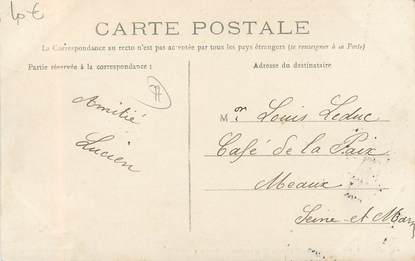 40€
CARTE POSTALE
La Correspondance au recto n'est pas acceptée par tous les pays étrangers (se renseigner à la Poste)
Partie réservée à la correspondance :
Adresse du destinataire
Amitié
Lucien
Mr Louis Leduc
Café de la Paix
Meaux
Seine-et-Marn